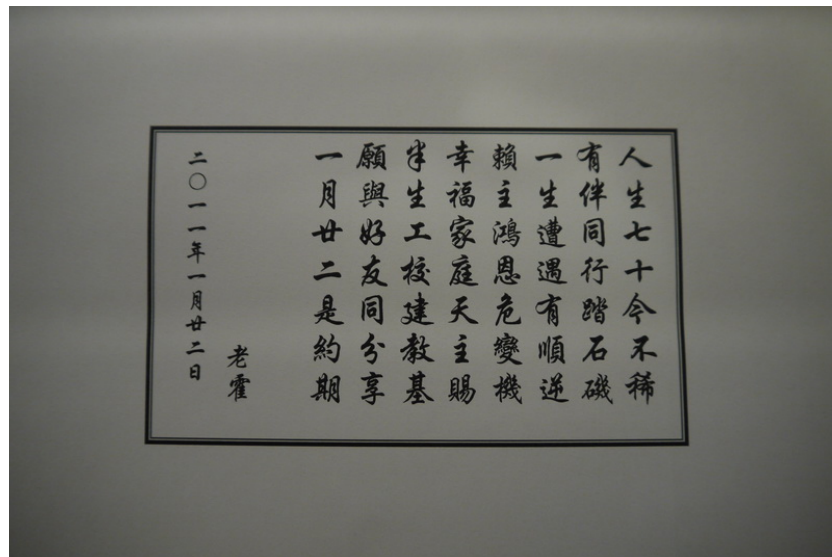 人生七十今不稀
有伴同行踏石磯
一生遭遇有順逆
賴主鴻恩危變機
幸福家庭天主賜
半生工校建教基
願與好友同分享
一月廿二是約期
老霍
二〇一一年一月廿二日